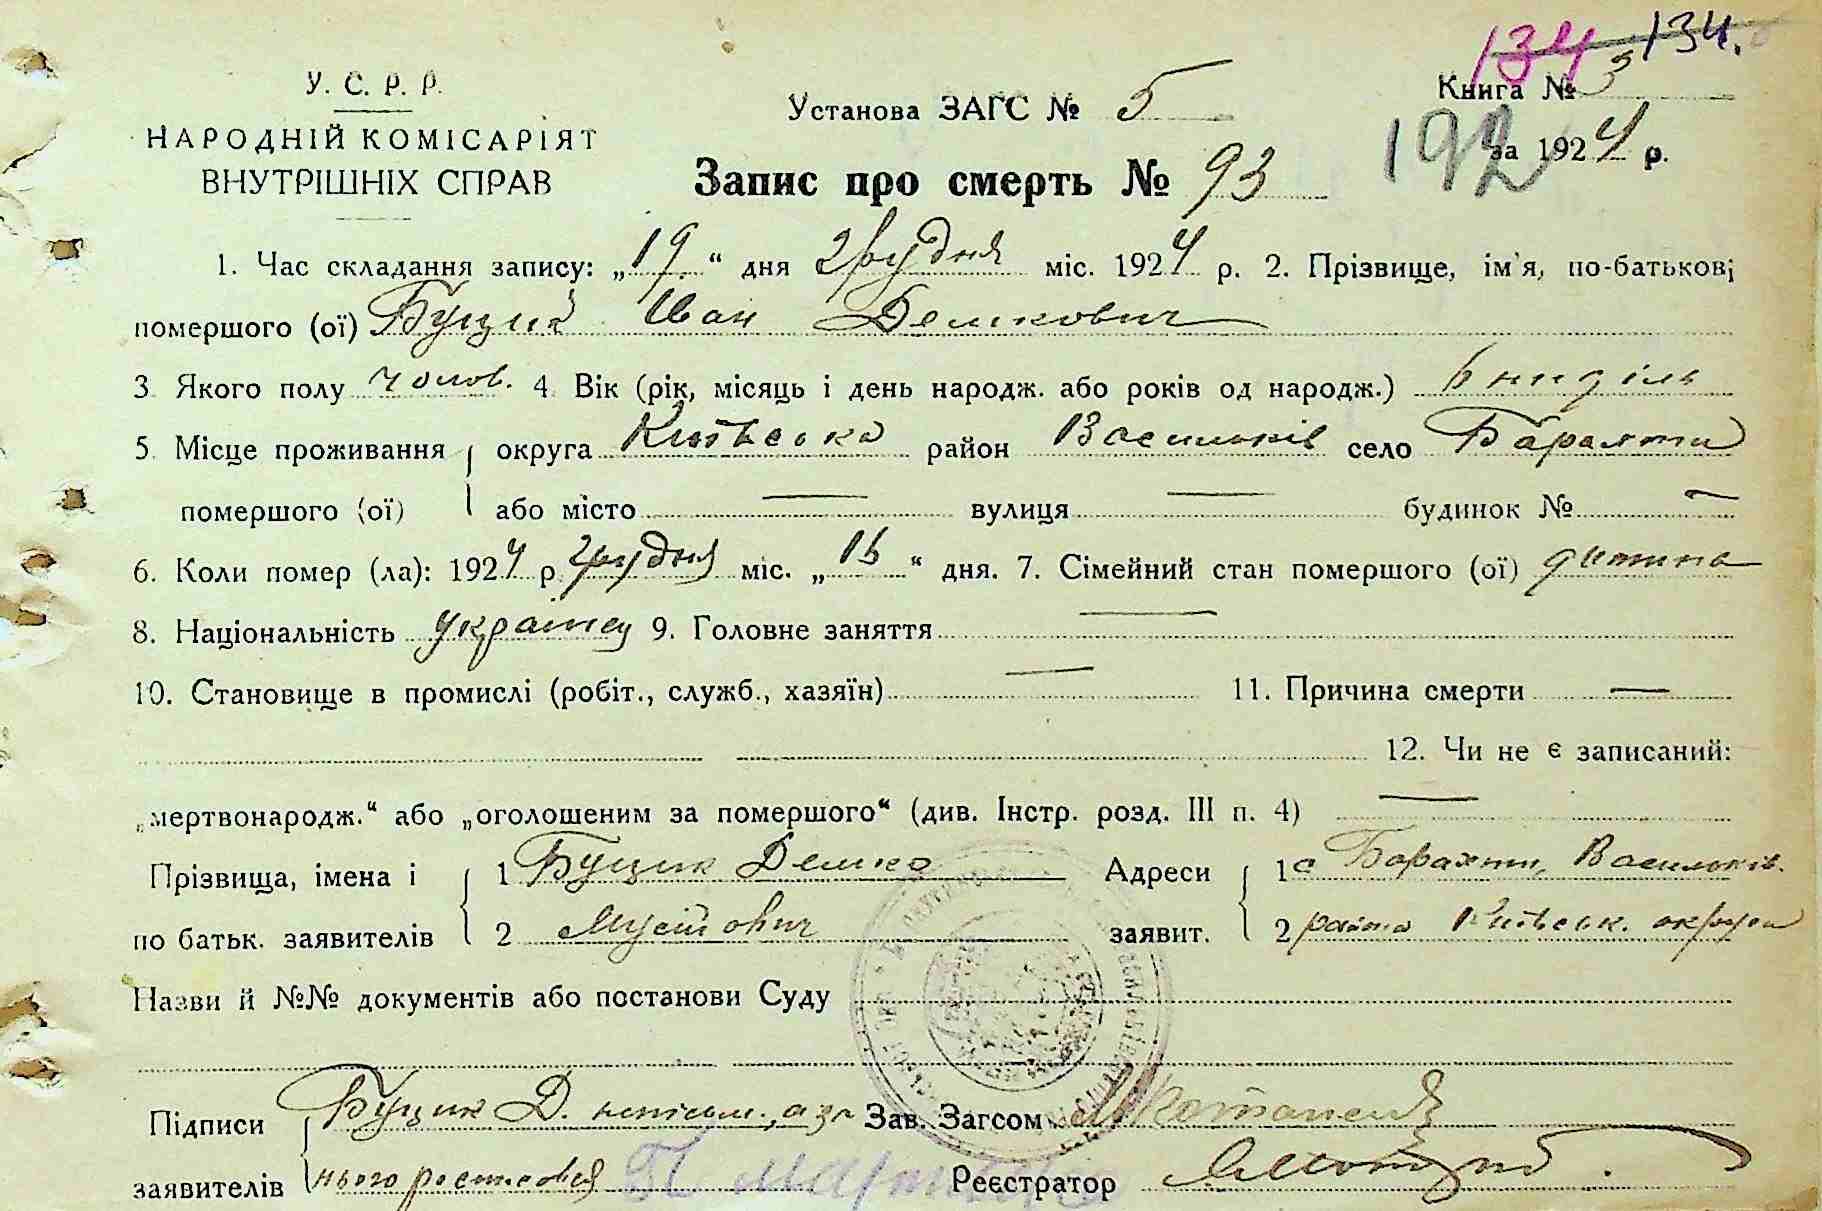 134 134.
У. С. Р. Р.
НАРОДНІЙ КОМІСАРІЯТ
ВНУТРІШНІХ СПРАВ
Установа ЗАГС № 5
Книга № 3
192
за 1924 р.
Запис про смерть № 93
1. Час складання запису: „19“ дня грудня міс. 1924 р. 2. Прізвище, ім'я, по-батькові
помершого (ої) Буцик Іван Демкович
3. Якого полу чолов. 4. Вік (рік, місяць і день народж. або років од народж.) 6 ниділь
5. Місце проживання округа Київська район Васильків село Барахти
помершого (ої) або місто — вулиця — будинок № —
6. Коли помер (ла): 1924 р. грудня міс. „16“ дня. 7. Сімейний стан помершого (ої) дитина
8. Національність українец 9. Головне заняття —
10. Становище в промислі (робіт., служб., хазяїн) — 11. Причина смерти —
12. Чи не є записаний:
„мертвонародж.“ або „оголошеним за помершого“ (див. Інстр. розд. III п. 4) —
Прізвища, імена і 1 Буцик Демко Адреси 1 с Борахти, Васильків.
по батьк. заявителів 2 Мусійович заявит. 2 района Київськ. округи
Назви й №№ документів або постанови Суду
Підписи Буцик Д. неписьм., а за Зав. Загсом
заявителів нього росписовся Реєстратор